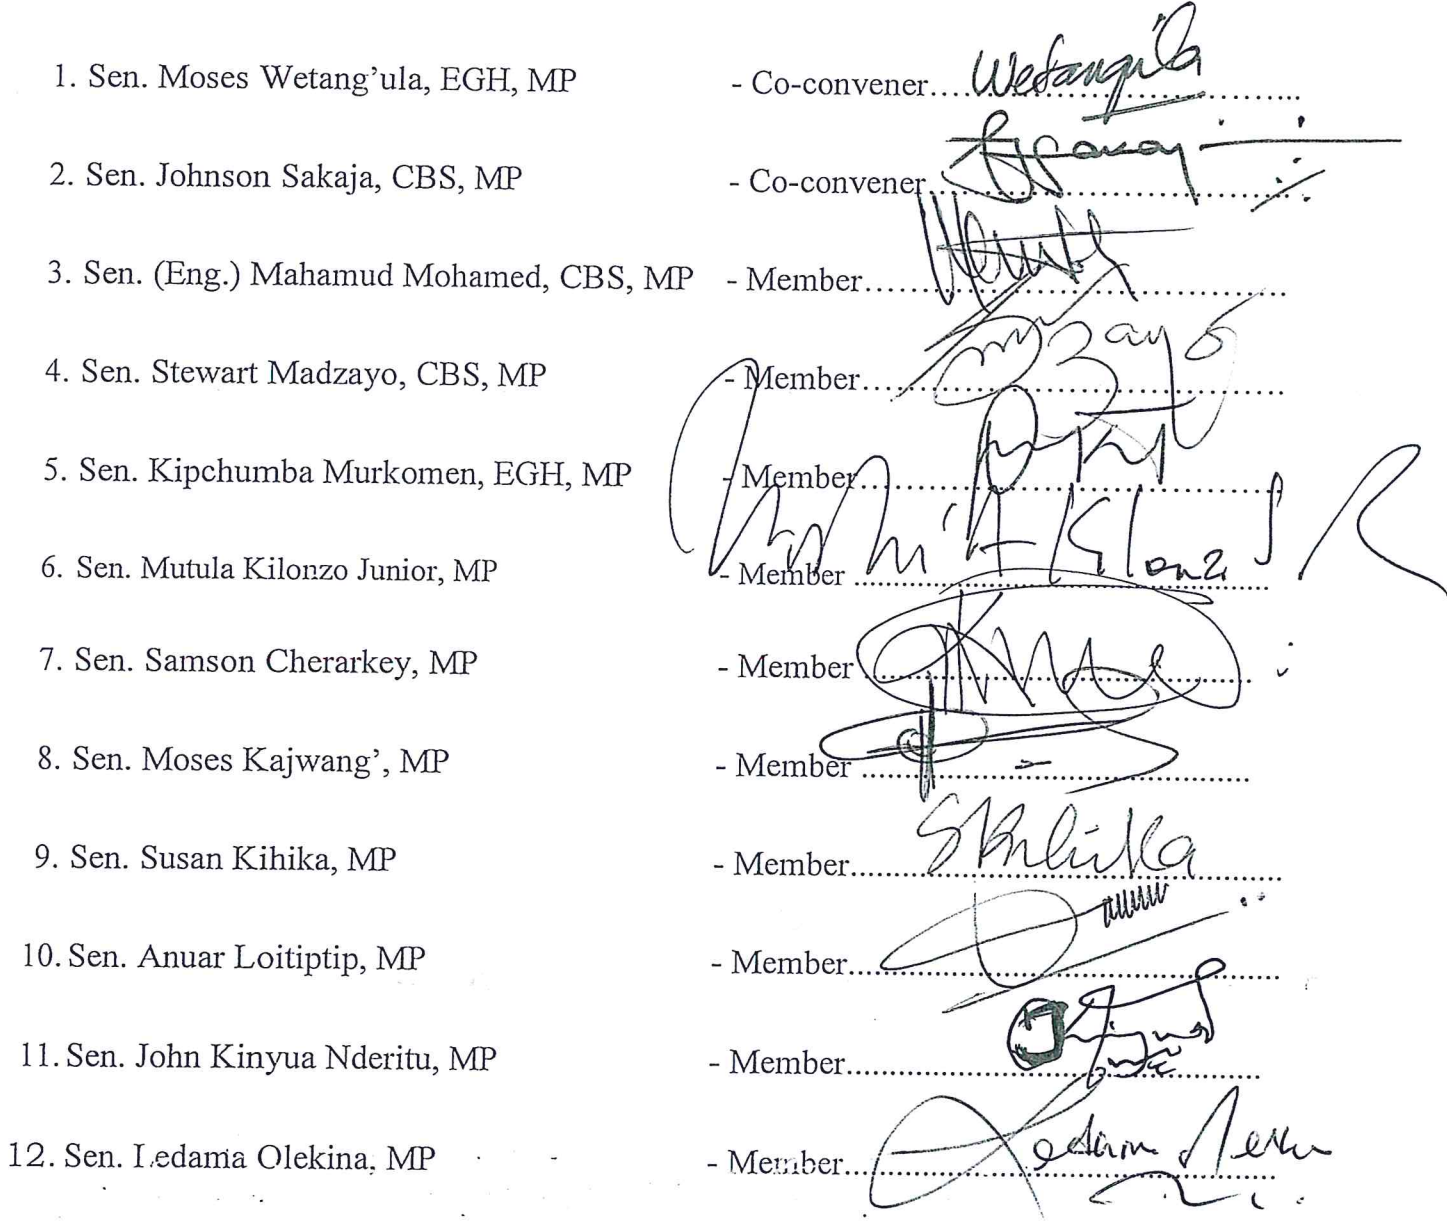 1. Sen. Moses Wetang'ula, EGH, MP - Co-convener.... Wetangula
2. Sen. Johnson Sakaja, CBS, MP - Co-convener
3. Sen. (Eng.) Mahamud Mohamed, CBS, MP - Member
4. Sen. Stewart Madzayo, CBS, MP - Member
5. Sen. Kipchumba Murkomen, EGH, MP - Member
6. Sen. Mutula Kilonzo Junior, MP - Member
7. Sen. Samson Cherarkey, MP - Member
8. Sen. Moses Kajwang', MP - Member
9. Sen. Susan Kihika, MP - Member.... SKihika
10. Sen. Anuar Loitiptip, MP - Member
11. Sen. John Kinyua Nderitu, MP - Member
12. Sen. Ledama Olekina, MP - Member